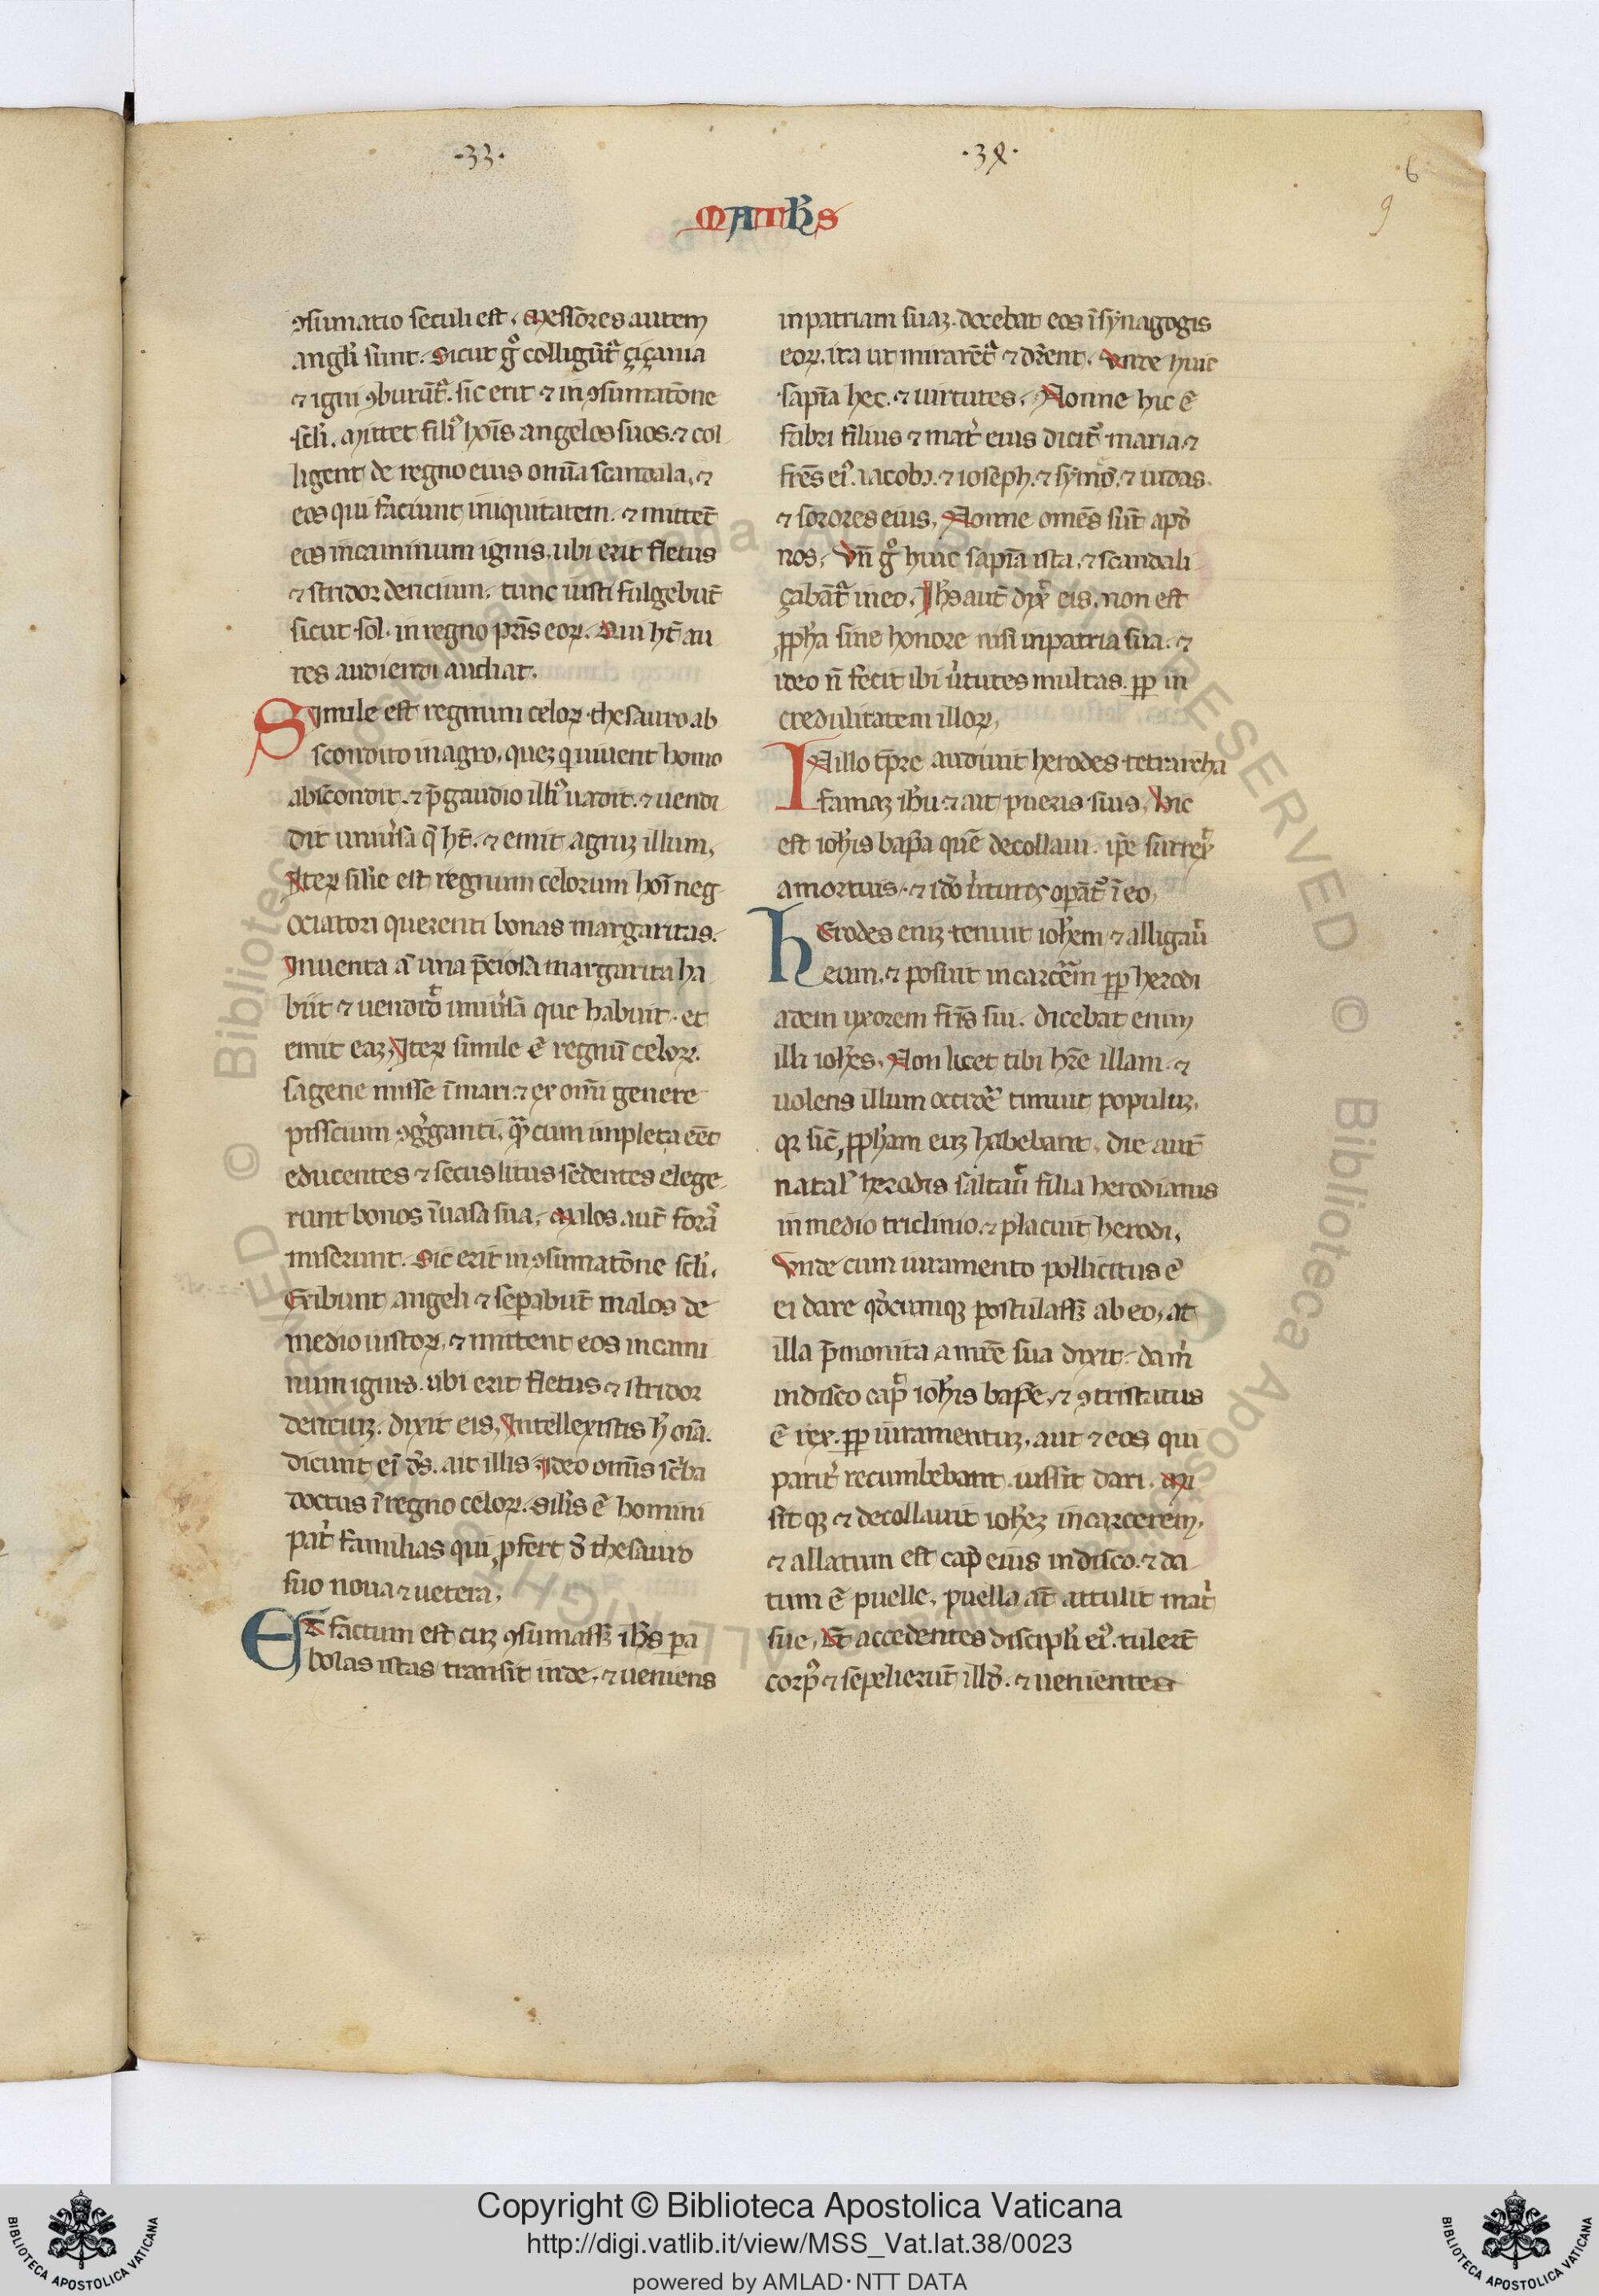 ·33·
·34·
6
9
MATTHS
ꝯsumatio seculi est. Messores autem
angli sunt. Sicut gͦ colligūtᷣ çiçania
⁊ igni ꝯburūtᷣ. sic erit ⁊ in ꝯsumatōne
scl̓i. Mittet filiꝰ hoīs angelos suos. ⁊ col
ligent de regno eius omīa scandala. ⁊
eos qui faciunt iniquitatem. ⁊ mittēt
eos in caminum ignis. ubi erit fletus
⁊ stridor dencium. tunc iusti fulgebūt
sicut sol. in regno pr̄is eoꝝ. Qui ht̄ au
res audiendi audiat.
Simile est regnum celoꝝ thesauro ab
scondito in agro. queꝫ qͥ inuenit homo
abscondit. ⁊ p̄ gaudio illiꝰ uadit. ⁊ uendi
dit uniu̓sa q̄ ht̄. ⁊ emit agruꝫ illum.
Iteꝝ sil̓e est regnum celorum hoī neg
ociatori querenti bonas margaritas.
Inuenta aͧ una p̄ciosa margarita ha
biit ⁊ uendidͭ uniu̓sa que habuit. et
emit eaꝫ. Iteꝝ simile ē regnū celoꝝ.
sagene misse ī mari ⁊ ex omī genere
pisscium ꝯg̓ganti. q̄ cum inpleta eēt
educentes ⁊ secus litus sedentes elege
runt bonos ī uasa sua. Malos aut̄ foraͣ
miserunt. Sic erit in ꝯsumatōne scl̓i.
Exibunt angeli ⁊ sepabūt malos de
medio iustoꝝ. ⁊ mittent eos in cami
num ignis. ubi erit fletus ⁊ stridor
denciuꝫ. dixit eis. Intellexistis h̄ oīa.
dicunt ei ds̄. ait illis. Ideo omīs sc̓ba
doctus ī regno celoꝝ. sil̓is ē homini
pat̓ familias qui ꝓfert d̄ thesauro
suo noua ⁊ uetera.
Et factum est cuꝫ ꝯsumasꝫ ihs̄ pa
bolas istas transit inde. ⁊ ueniens
in patriam suaꝫ. docebat eos ī synagogis
eoꝝ. ita ut mirarēt̓ ⁊ dr̄ent. Unde huic
sapīa hec. ⁊ uirtutes. Nonne hic ē
fabri filius ⁊ mat̓ eius dicitᷣ maria. ⁊
frēs eiꝰ. iacobꝫ. ⁊ ioseph. ⁊ symō. ⁊ iudas.
⁊ sorores eius. Nonne omēs sūt apd̓
nos. Vn̄ gͦ huic sapīa ista. ⁊ scandali
çabātᷣ in eo. Ihs aut̄ dix̓ eis. non est
ꝓph̄a sine honore nisi in patria sua. ⁊
ideo n̄ fecit ibi u̓tutes multas. ꝓp in
credulitatem illoꝝ.
IN illo tp̄re audiuit herodes tetrarcha
famaꝫ ihu ⁊ ait pueris suis. hic
est ioh̓is bap̄a quē decollaui. ip̄e surrexͭ
a mortuis. ⁊ idō u̓tutes opāt̓ ī eo.
HErodes eniꝫ tenuit ioh̓em ⁊ alligau̓
eum. ⁊ posuit in carcēm ꝓp herodi
adem uxorem frīs sui. dicebat enim
illi ioh̓es. Non licet tibi hr̄e illam. ⁊
uolens illum occidē timuit populuꝫ.
qꝫ sic̄ ꝓph̄am euꝫ habebant. die aut̄
natalꝰ herodis saltau̓ filia herodianis
in medio triclinio. ⁊ placuit herodi.
Unde cum iuramento pollicitus ē
ei dare qd̓cumqꝫ postulassꝫ ab eo. at
illa p̄monita a mr̄e sua dixit. da m̓
in disco cap̓ ioh̓is bap̄e. ⁊ ꝯtristatus
ē rex. ꝓp iuramentuꝫ. aut ⁊ eos qui
parit̓ recumbebant. iussit dari. Mi
sit qꝫ ⁊ decollauit ioh̓eꝫ in carcerem.
⁊ allatum est cap̓ eius in disco. ⁊ da
tum ē puelle. puella at̄ attulit mat̓
sue. Et accedentes discipl̓i eiꝰ. tulert̄
corpꝰ ⁊ sepelierūt illd̓. ⁊ uenientes
Copyright © Biblioteca Apostolica Vaticana
http://digi.vatlib.it/view/MSS_Vat.lat.38/0023
powered by AMLAD·NTT DATA
BIBLIOTECA APOSTOLICA VATICANA
BIBLIOTECA APOSTOLICA VATICANA